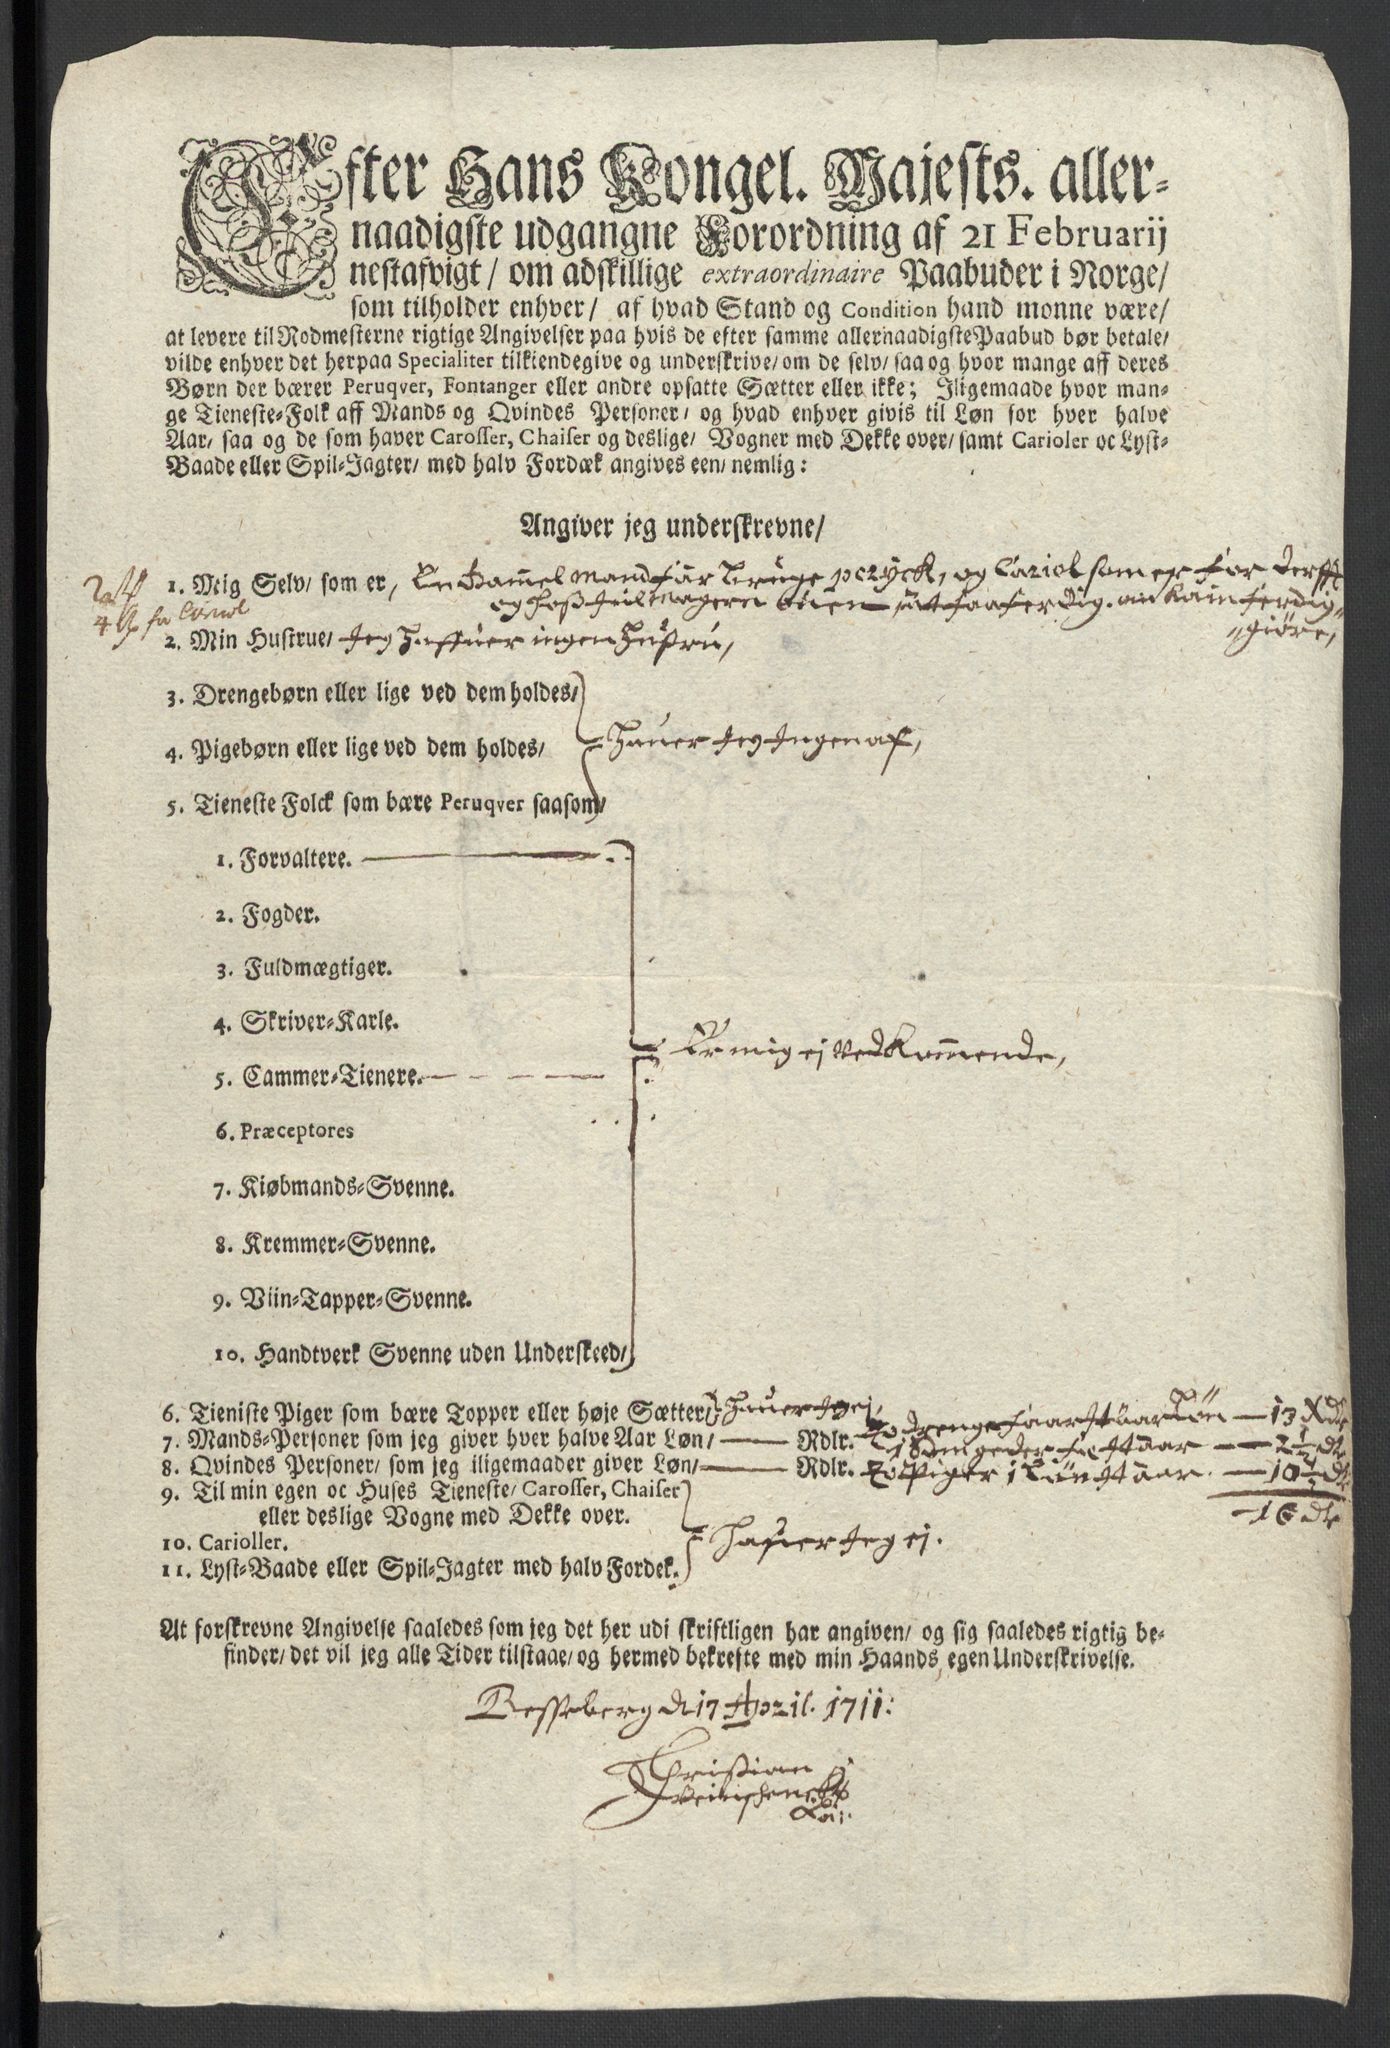 Efter Hans Kongel. Majests. aller-
naadigste udgangne Forordning af 21 Februarij
nestafvigt/ om adskillige extraordinaire Paabuder i Norge/
som tilholder enhver/ af hvad Stand og Condition hand monne være/
at levere til Rodmesterne rigtige Angivelser paa hvis de efter samme allernaadigste Paabud bør betale/
vilde enhver det herpaa Specialiter tilkiendegive og underskrive/ om de selv/ saa og hvor mange aff deres
Børn der bærer Peruqver, Fontanger eller andre opsatte Sætter eller ikke; Iligemaade hvor man-
ge Tieneste-Folk aff Mands og Qvindes Personer/ og hvad enhver givis til Løn for hver halve
Aar/ saa og de som haver Carosser, Chaiser og deslige/ Vogner med Dekke over/ samt Carioler oc Lyst-
Baade eller Spil-Jagter/ med halv Fordæk angives een/ nemlig:
Angiver jeg underskrevne/
1. Mig Selv/ som er, En Gammel mand peryck, og Cariol som er for
4 for Cariol
giöre,
2. Min Hustrue/ Jeg Haffuer ingen Hustru,
3. Drengebørn eller lige ved dem holdes/
4. Pigebørn eller lige ved dem holdes/ Hauer Jeg Ingen af,
5. Tieneste Folck som bære Peruqver saasom/
1. Forvaltere.
2. Fogder.
3. Fuldmægtiger.
4. Skriver-Karle.
Er mig ej Vedkommende,
5. Cammer-Tienere.
6. Præceptores
7. Kiøbmands-Svenne.
8. Kremmer-Svenne.
9. Viin-Tapper-Svenne.
10. Handtverk Svenne uden Underskeed/
6. Tieniste Piger som bære Topper eller høje Sætter/ Hauer Jeg ej,
7. Mands-Personer som jeg giver hver halve Aar Løn/ Rdlr.
8. Qvindes Personer/ som jeg iligemaader giver Løn/ Rdlr.
9. Til min egen oc Huses Tieneste/ Carosser, Chaiser
eller deslige Vogne med Dekke over. 16
10. Carioller. Hafuer Jeg ej.
11. Lyst-Baade eller Spil-Jagter med halv Fordek.
At forskrevne Angivelse saaledes som jeg det her udi skriftligen har angiven/ og sig saaledes rigtig be-
finder/ det vil jeg alle Tider tilstaae/ og hermed bekrefte med min Haands egen Underskrivelse.
d 17 April. 1711:
Christian